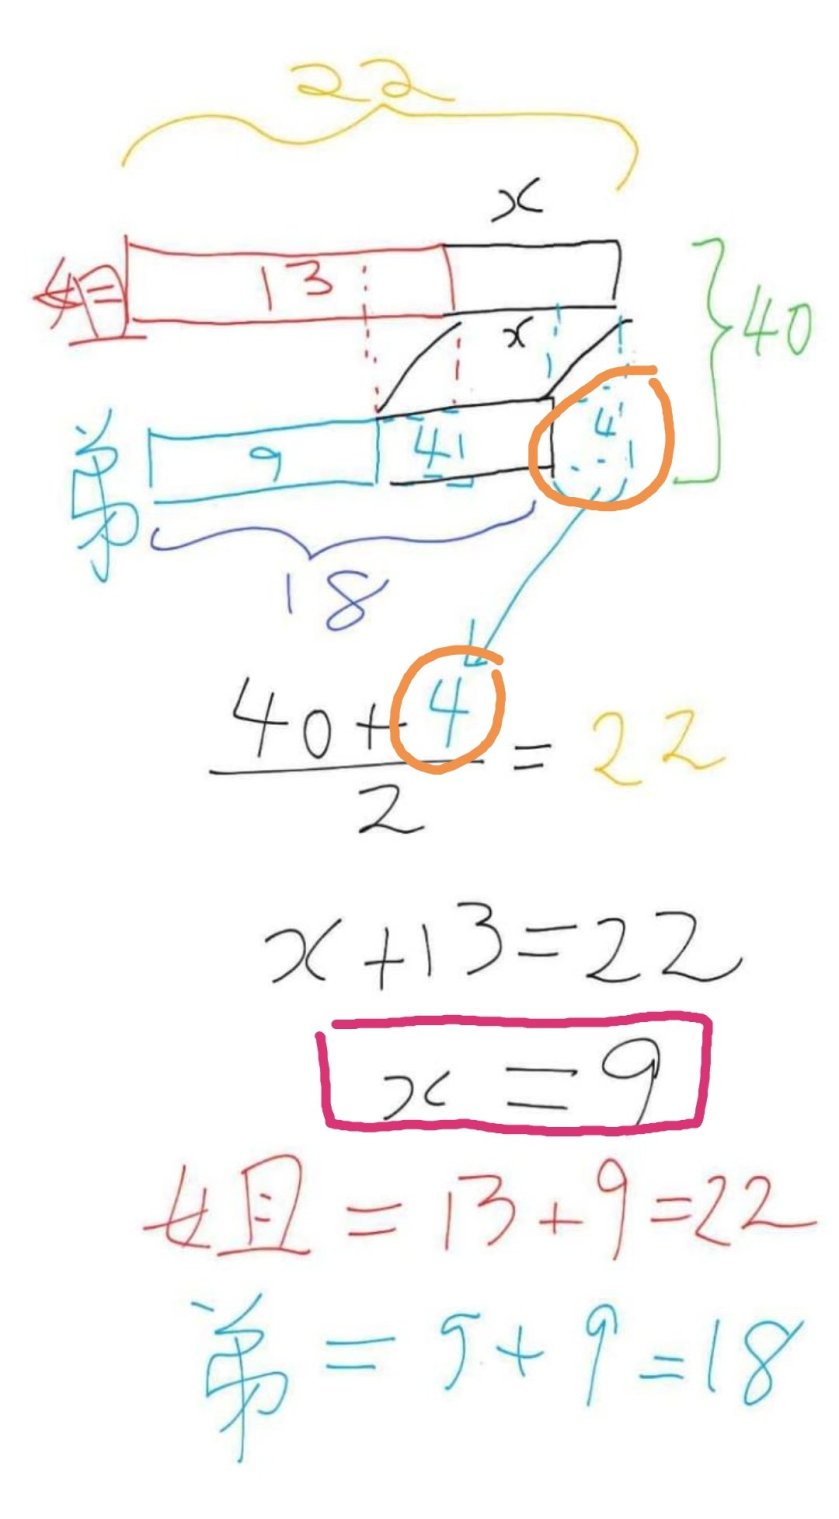 22
x
姐 13
40
x
弟 9 4 4
18
40+4
2
= 22
x+13=22
x=9
姐=13+9=22
弟=9+9=18